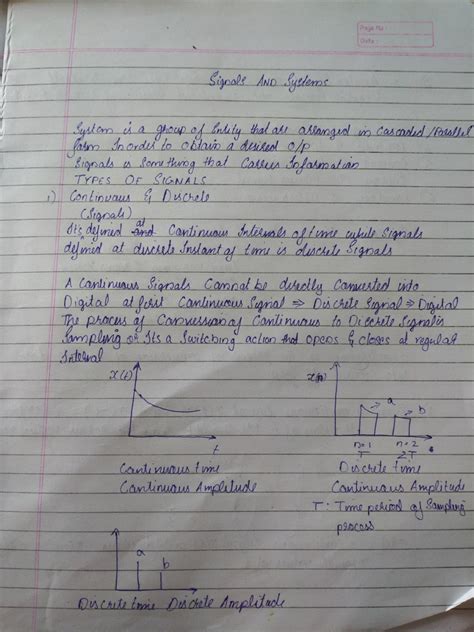 Page No:
Date:
Signals AND Systems
System is a group of Entity that are arranged in Cascaded/Parallel
form In order to obtain a desired o/p
Signals is Something that Carries Information
TYPES OF SIGNALS
1) Continuous & Discrete
(Signals)
Its defined at Continuous Intervals of time while Signals
defined at discrete Instant of time is discrete Signals
A Continuous Signals Cannot be directly Converted into
Digital at first Continuous Signal ⇒ Discrete Signal ⇒ Digital
The process of Conversion of Continuous to Discrete Signal is
Sampling or Its a Switching action that opens & closes at regular
Interval
x(t)
t
Continuous time
Continuous Amplitude
a
b
n=1 n=2
T 2T
Discrete time
Continuous Amplitude
T: Time period of Sampling
process
a
b
Discrete time Discrete Amplitude